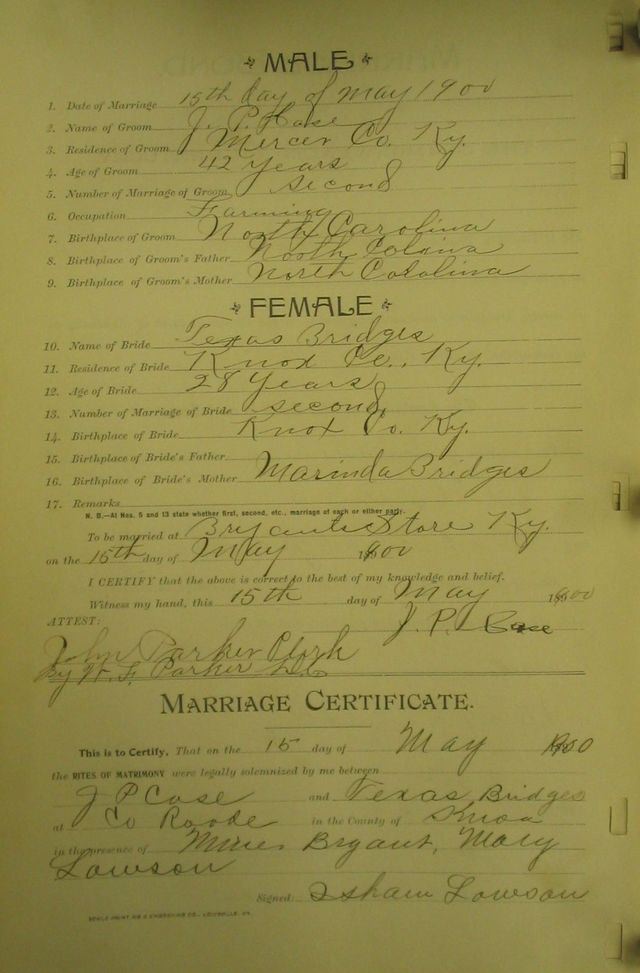 MALE
1. Date of Marriage 15th day of May 1900
2. Name of Groom J. P. Case
3. Residence of Groom Mercer Co. Ky.
4. Age of Groom 42 years
5. Number of Marriage of Groom second
6. Occupation Farming
7. Birthplace of Groom North Carolina
8. Birthplace of Groom's Father North
9. Birthplace of Groom's Mother North Carolina
FEMALE
10. Name of Bride Texas Bridges
11. Residence of Bride Knox Co., Ky.
12. Age of Bride 28 years
13. Number of Marriage of Bride second
14. Birthplace of Bride Knox Co. Ky.
15. Birthplace of Bride's Father
16. Birthplace of Bride's Mother Marinda Bridges
17. Remarks
N. B.—At Nos. 5 and 13 state whether first, second, etc., marriage of each or either party.
To be married at Bryants Store Ky.
on the 15th day of May 1900
I CERTIFY that the above is correct to the best of my knowledge and belief.
Witness my hand, this 15th day of May 1900
ATTEST: J. P. Case
John Parker Clerk
By W. F. Parker D.C.
MARRIAGE CERTIFICATE.
This is to Certify, That on the 15 day of May 1900
the RITES OF MATRIMONY were legally solemnized by me between
J P Case and Texas Bridges
at Co Roade in the County of Knox
in the presence of Bryant, Mary
Lawson
Signed Isham Lawson